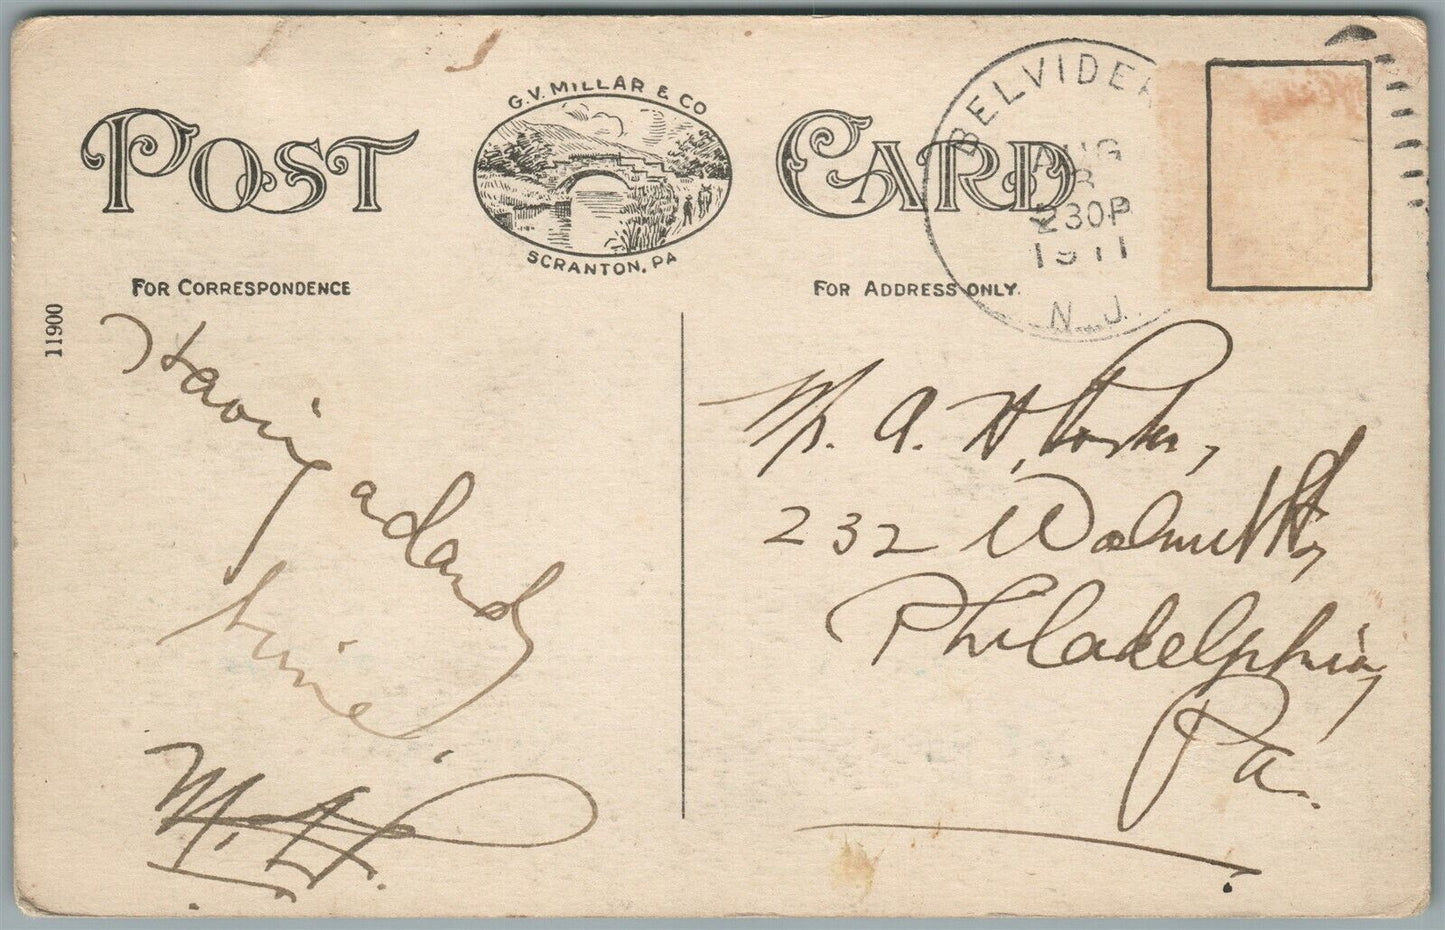 POST CARD
G.V. MILLAR & CO
SCRANTON, PA
BELVIDE
AUG
230P
1911
N.J.
FOR CORRESPONDENCE
FOR ADDRESS ONLY.
11900
Having
a dandy
time
Mr. A. H.
232 Walnut St,
Philadelphia,
Pa.